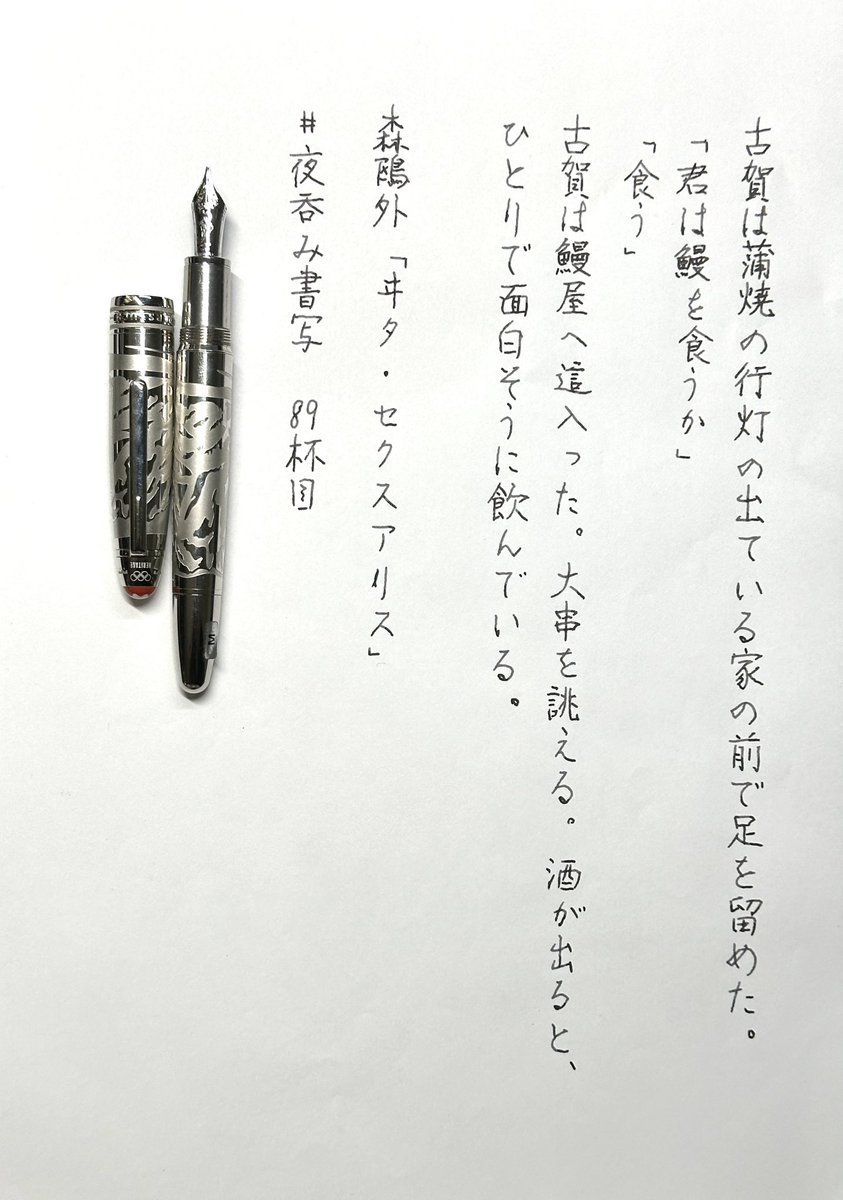 古賀は蒲焼の行灯の出ている家の前で足を留めた。
「君は鰻を食うか」
「食う」
古賀は鰻屋へ這入った。大串を誂える。酒が出ると、
ひとりで面白そうに飲んでいる。
森鴎外「ヰタ・セクスアリス」
#夜呑み書写 89杯目
HERITAGE
M